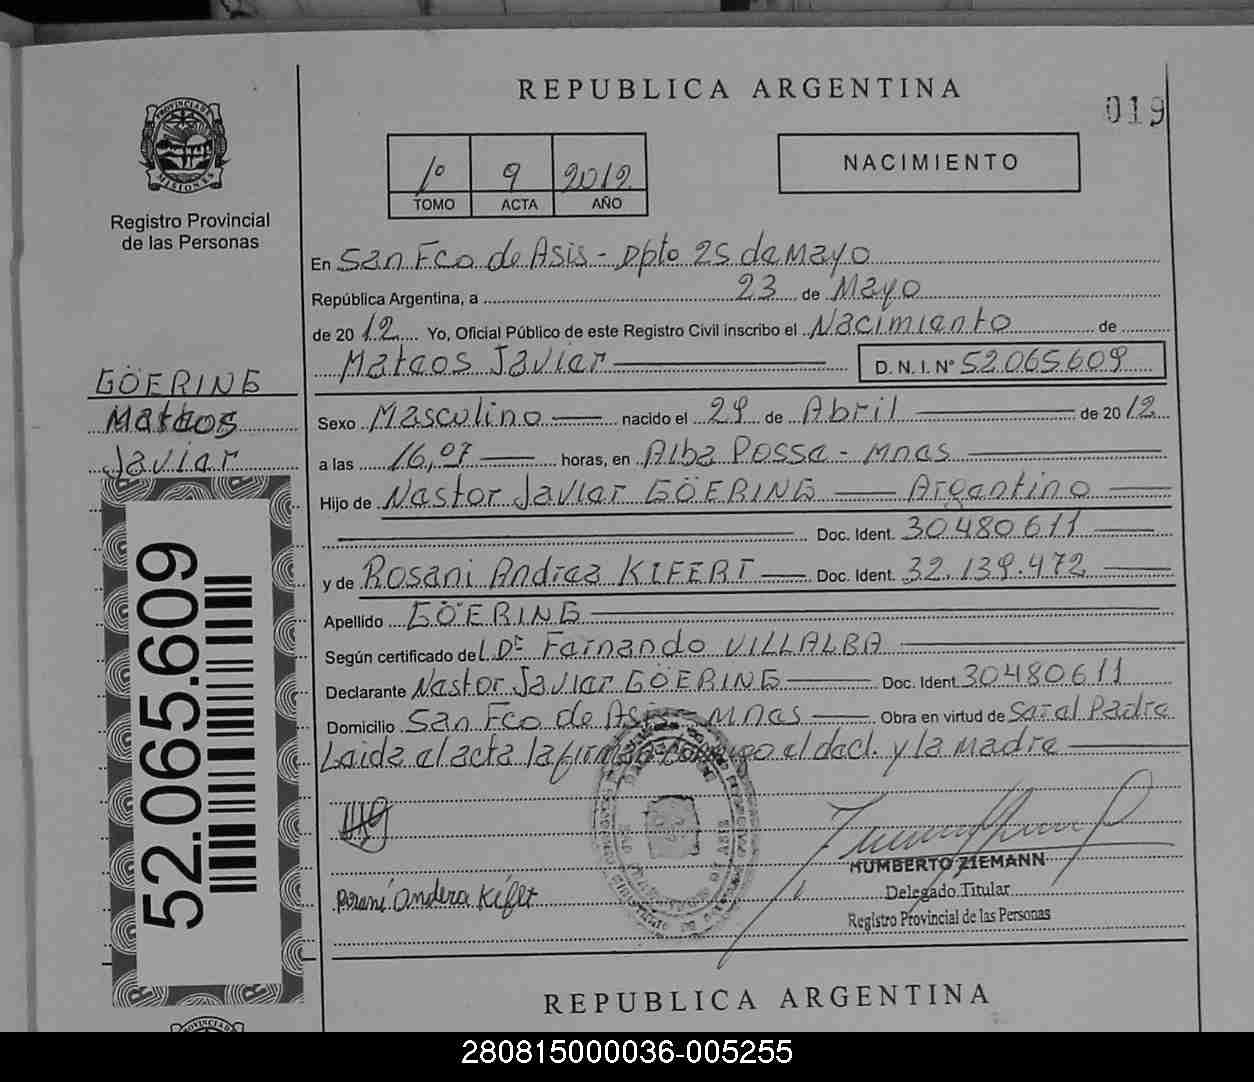 REPUBLICA ARGENTINA
019
PROVINCIA DE MISIONES
1º 9 2012
TOMO ACTA AÑO
NACIMIENTO
Registro Provincial
de las Personas
En San Fco de Asis - Dpto 25 de Mayo
República Argentina, a 23 de Mayo
de 2012 Yo, Oficial Público de este Registro Civil inscribo el Nacimiento de
Mateos Javier D. N. I. Nº 52.065.609
GÖERING
Mateos
Javier
Sexo Masculino nacido el 29 de Abril de 2012
a las 16,07 horas, en Alba Posse - Mnes
Hijo de Nestor Javier GÖERING Argentino
Doc. Ident. 30480611
y de Rosani Andrea KIFERT Doc. Ident. 32.139.472
Apellido GÖERING
Según certificado del Dr Fernando VILLALBA
Declarante Nestor Javier GÖERING Doc. Ident 30480611
Domicilio San Fco de Asis - Mnes Obra en virtud de Ser el Padre
Leida el acta la firman conmigo el decl. y la madre
52.065.609
HUMBERTO ZIEMANN
Delegado Titular
Registro Provincial de las Personas
REPUBLICA ARGENTINA
280815000036-005255